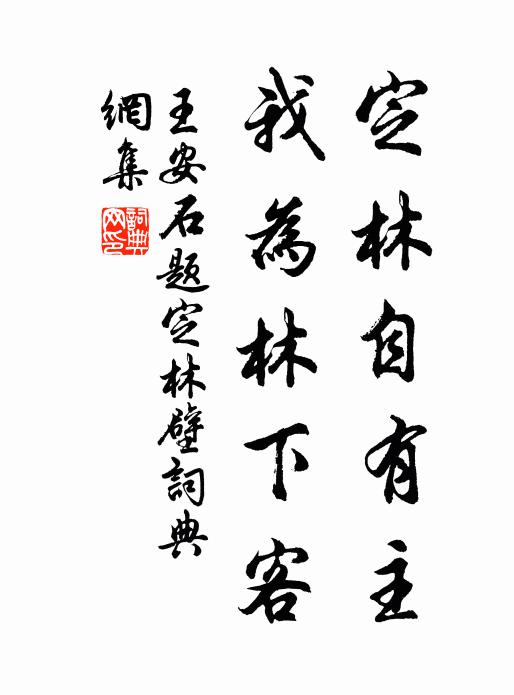 定林自有主
我為林下客
王安石題定林壁詞典
網集
詞典网印